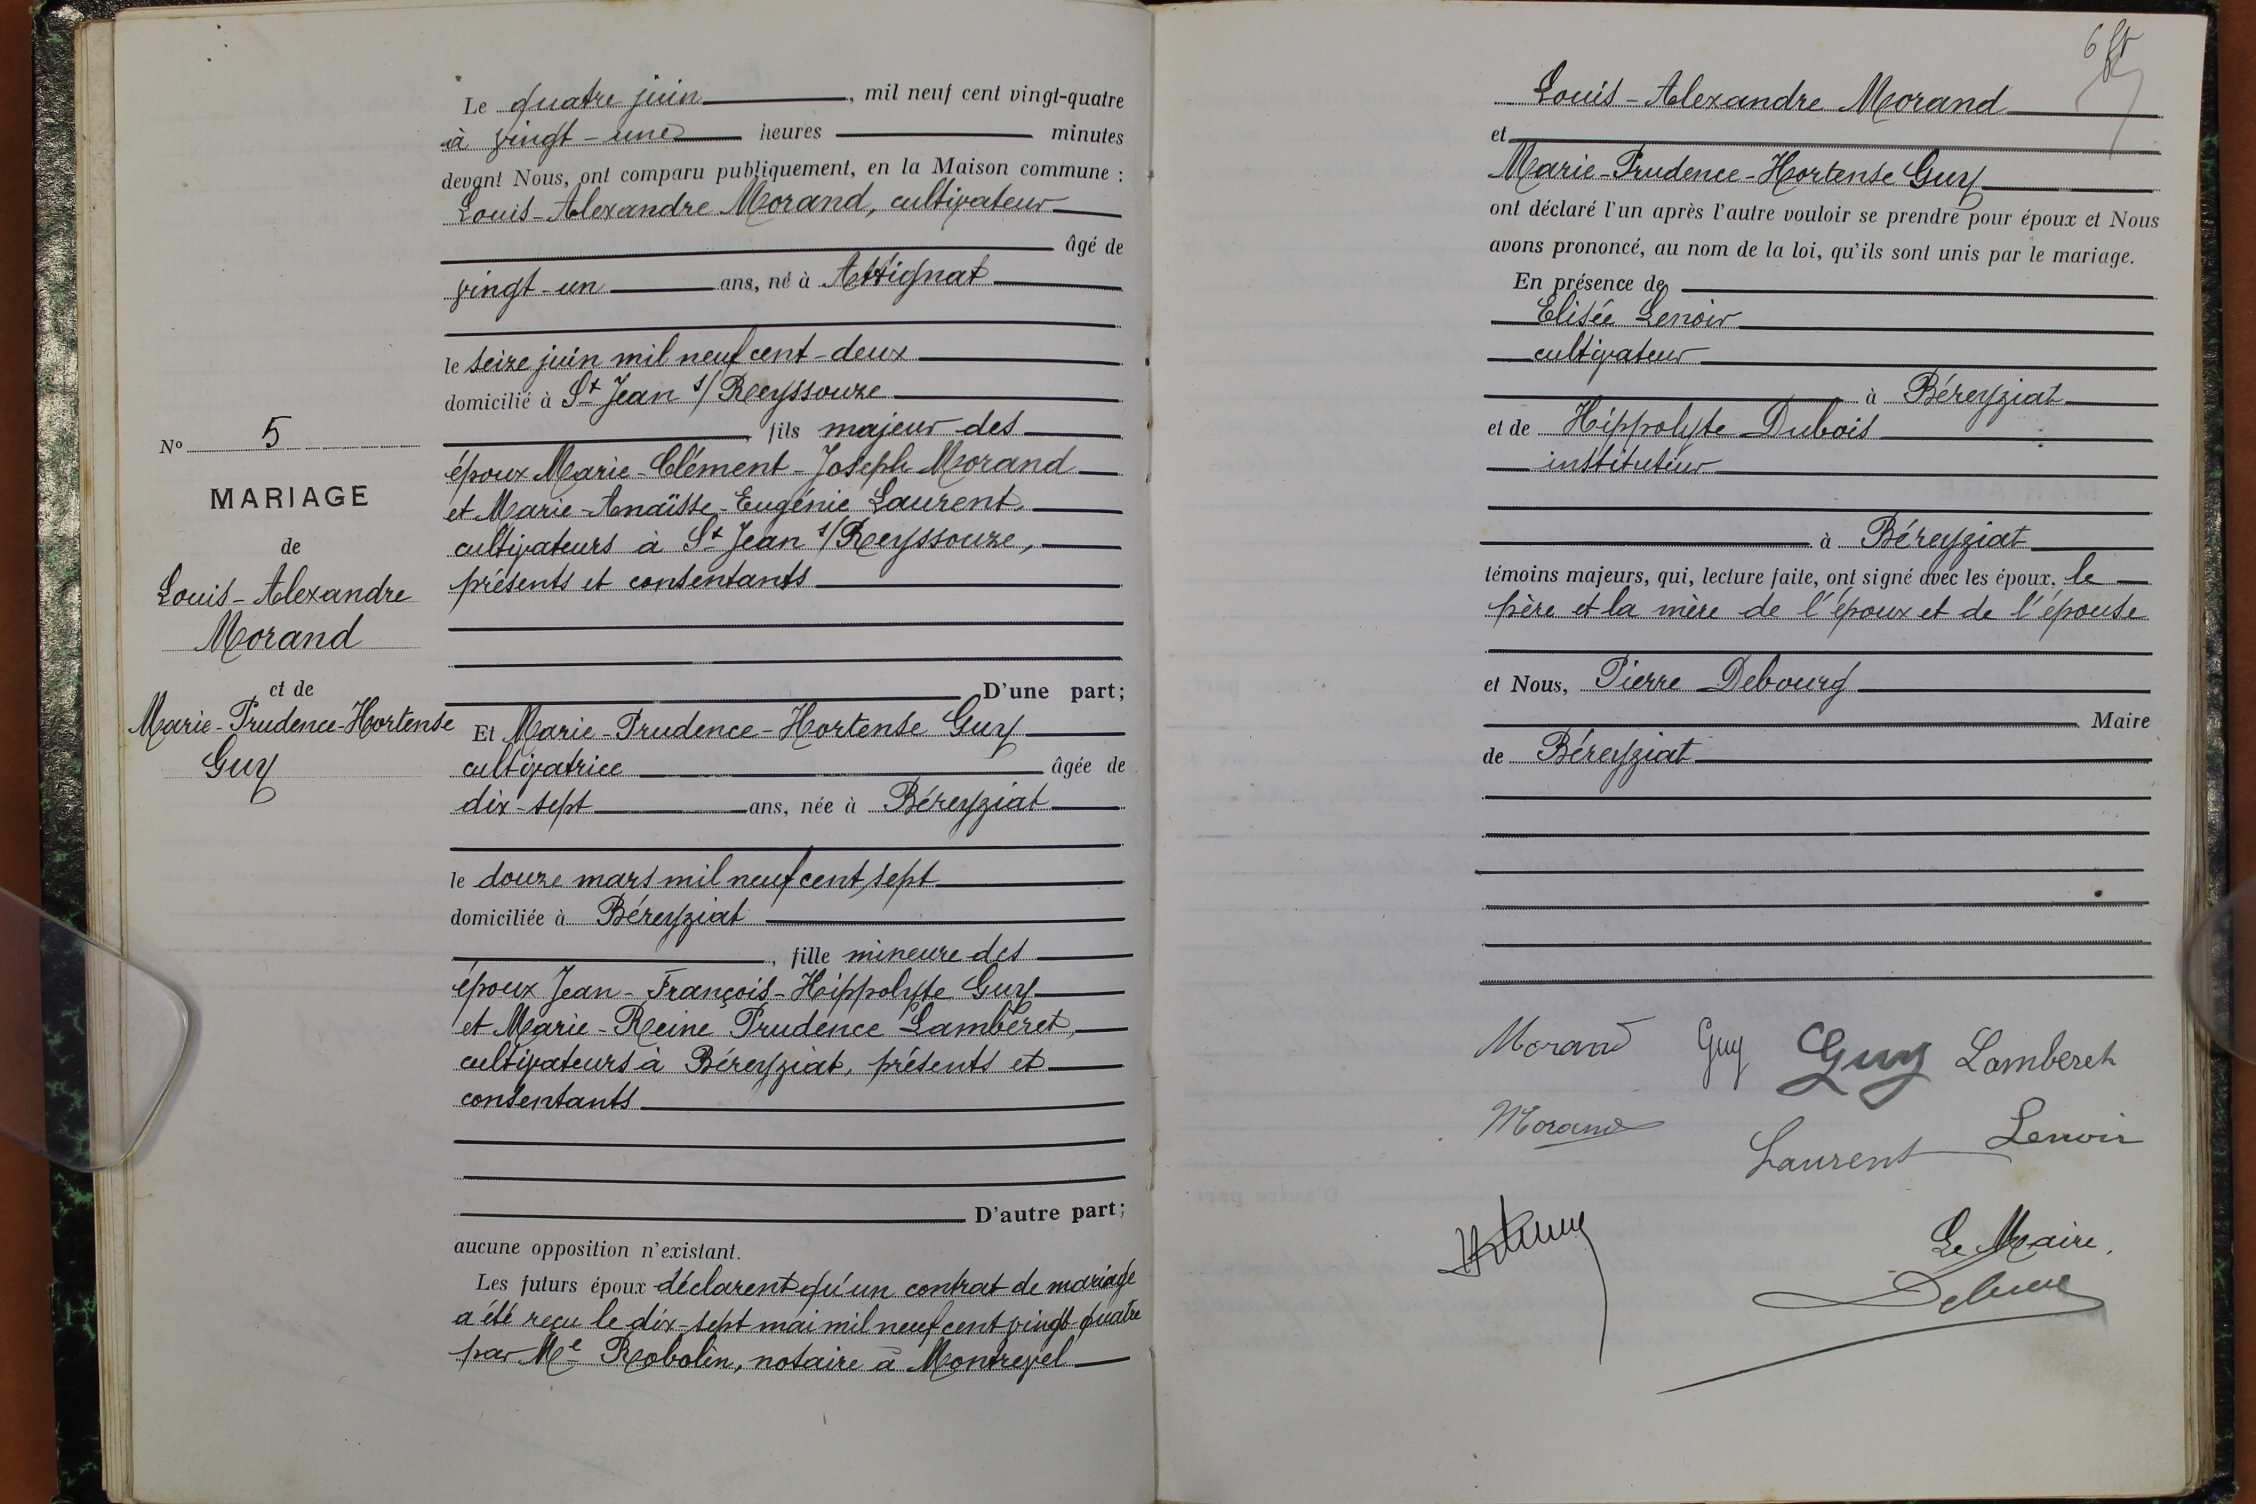 Le quatre juin, mil neuf cent vingt-quatre
à vingt-une heures minutes
devant Nous, ont comparu publiquement, en la Maison commune :
Louis-Alexandre Morand, cultivateur
âgé de
vingt-un ans, né à Attignat
le seize juin mil neuf cent-deux
domicilié à St Jean s/ Reyssouze
fils majeur des
époux Marie-Clément-Joseph Morand
et Marie-Anaïsse-Eugénie Laurent
cultivateurs à St Jean s/ Reyssouze,
présents et consentants
D'une part;
Et Marie-Prudence-Hortense Guy
cultivatrice âgée de
dix-sept ans, née à Béreyziat
le douze mars mil neuf cent sept
domiciliée à Béreyziat
, fille mineure des
époux Jean-François-Hippolyte Guy
et Marie-Reine Prudence Lambéret,
cultivateurs à Béreyziat, présents et
consentants
D'autre part;
aucune opposition n'existant.
Les futurs époux déclarent qu'un contrat de mariage
a été reçu le dix-sept mai mil neuf cent vingt quatre
par Me Robolin, notaire à Montrevel
No 5
MARIAGE
de
Louis-Alexandre
Morand
et de
Marie-Prudence-Hortense
Guy
6
Louis-Alexandre Morand
et
Marie-Prudence-Hortense Guy
ont déclaré l'un après l'autre vouloir se prendre pour époux et Nous
avons prononcé, au nom de la loi, qu'ils sont unis par le mariage.
En présence de
Elisée Lenoir
cultivateur
à Béreyziat
et de Hippolyte Dubois
instituteur
à Béreyziat
témoins majeurs, qui, lecture faite, ont signé avec les époux, le
père et la mère de l'époux et de l'épouse
et Nous, Pierre Debourg
Maire
de Béreyziat
Morand Guy Guy Lamberet
Morand Laurent Lenoir
Le Maire,